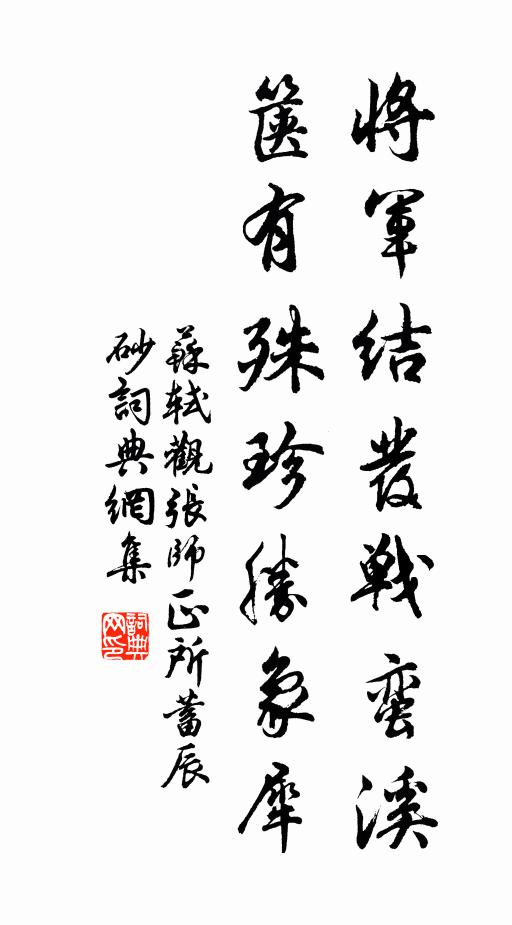 將軍結發戰蠻溪
篋有殊珍勝象犀
蘇軾觀張師正所蓄辰
砂詞典網集
詞典网印